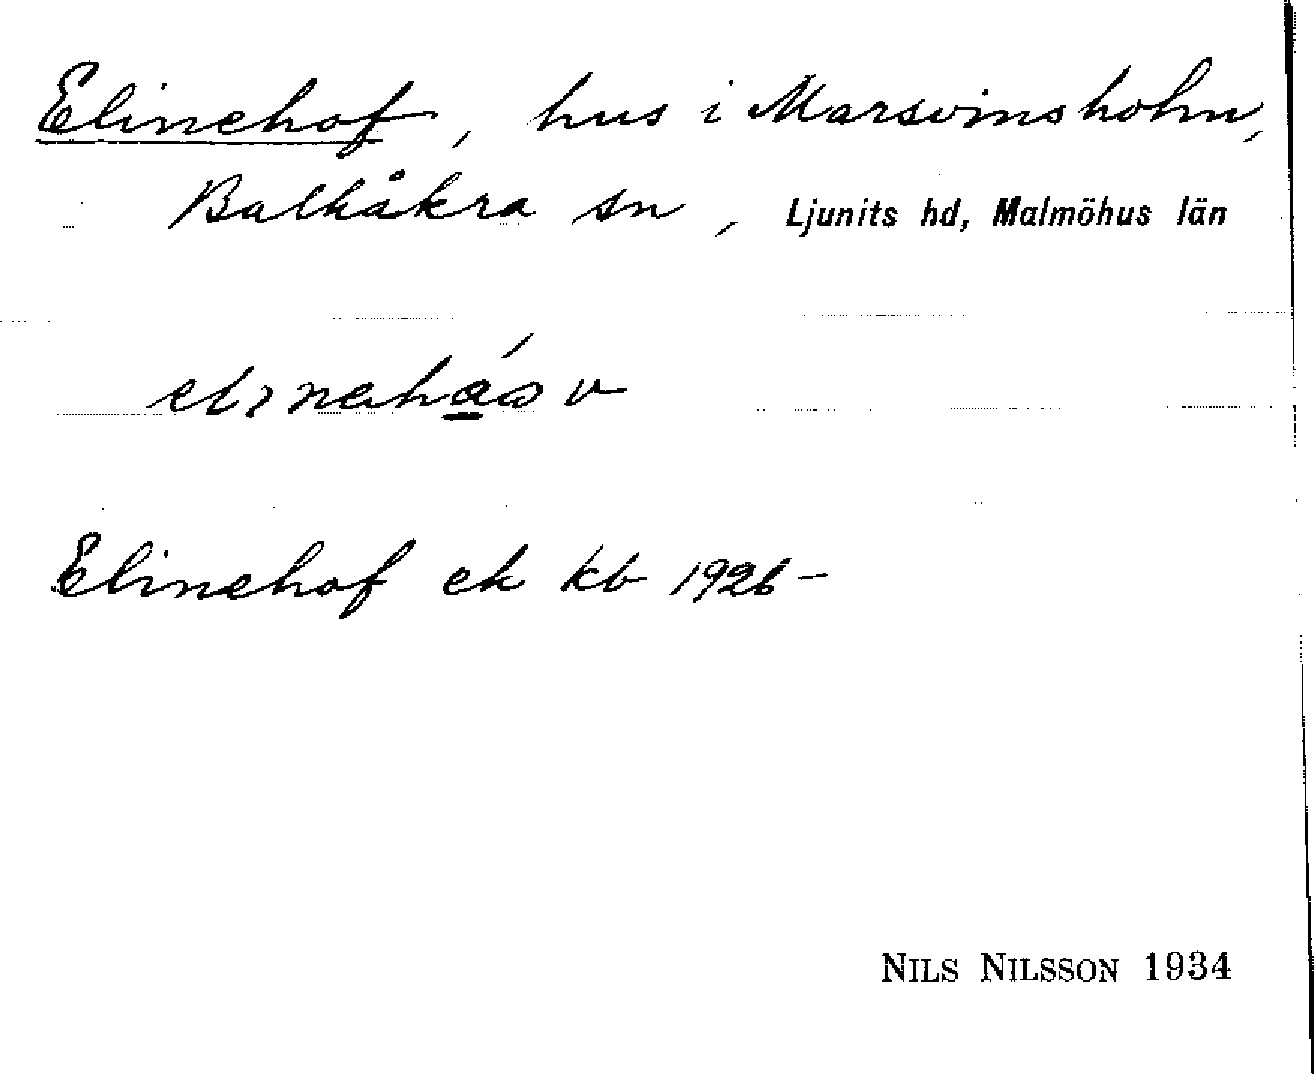 Elinehof, hus i Marsvinsholm,
Balkåkra sn, Ljunits hd, Malmöhus län
Elinehof ek kb 1926–
NILS NILSSON 1934